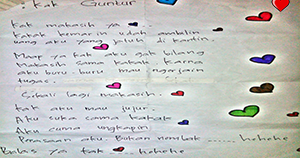 : Kak Guntur
Kak makasih ya
Kakak kemarin udah ambilin
uang aku yang jatuh di kantin.
Maap ya kak aku gak bilang
makasih sama kakak. karna
aku buru-buru mau ngerjain
tugas.
Sekali lagi makasih.
kak aku mau jujur.
Aku suka sama kakak
Aku cuma ungkapin
Perasaan aku. Bukan nembak ...... hehehe
Balas ya kak hehehe